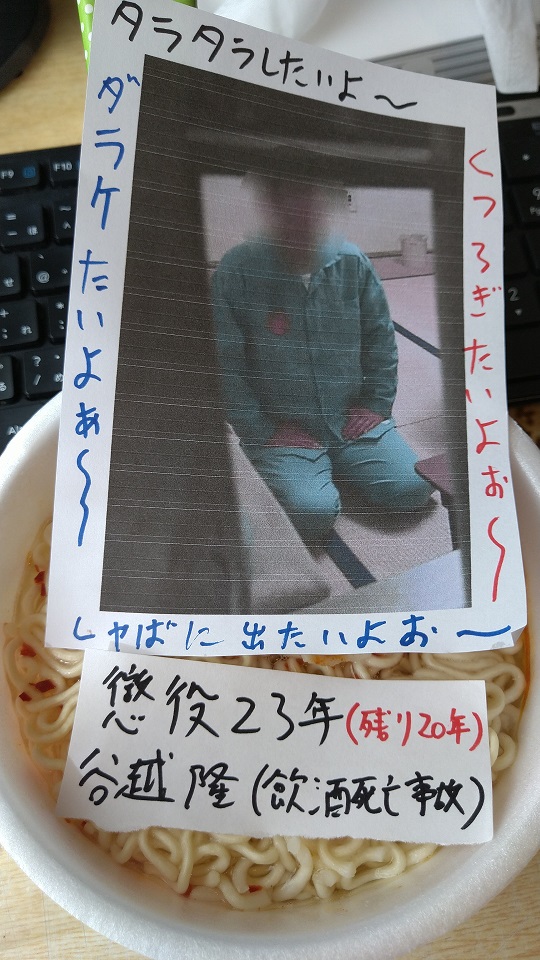 タラタラしたいよ～
ダラケたいよぉ～
くつろぎたいよぉ～
しゃばに出たいよぉ～
懲役23年(残り20年)
谷越 隆(飲酒死亡事故)
F9
F10